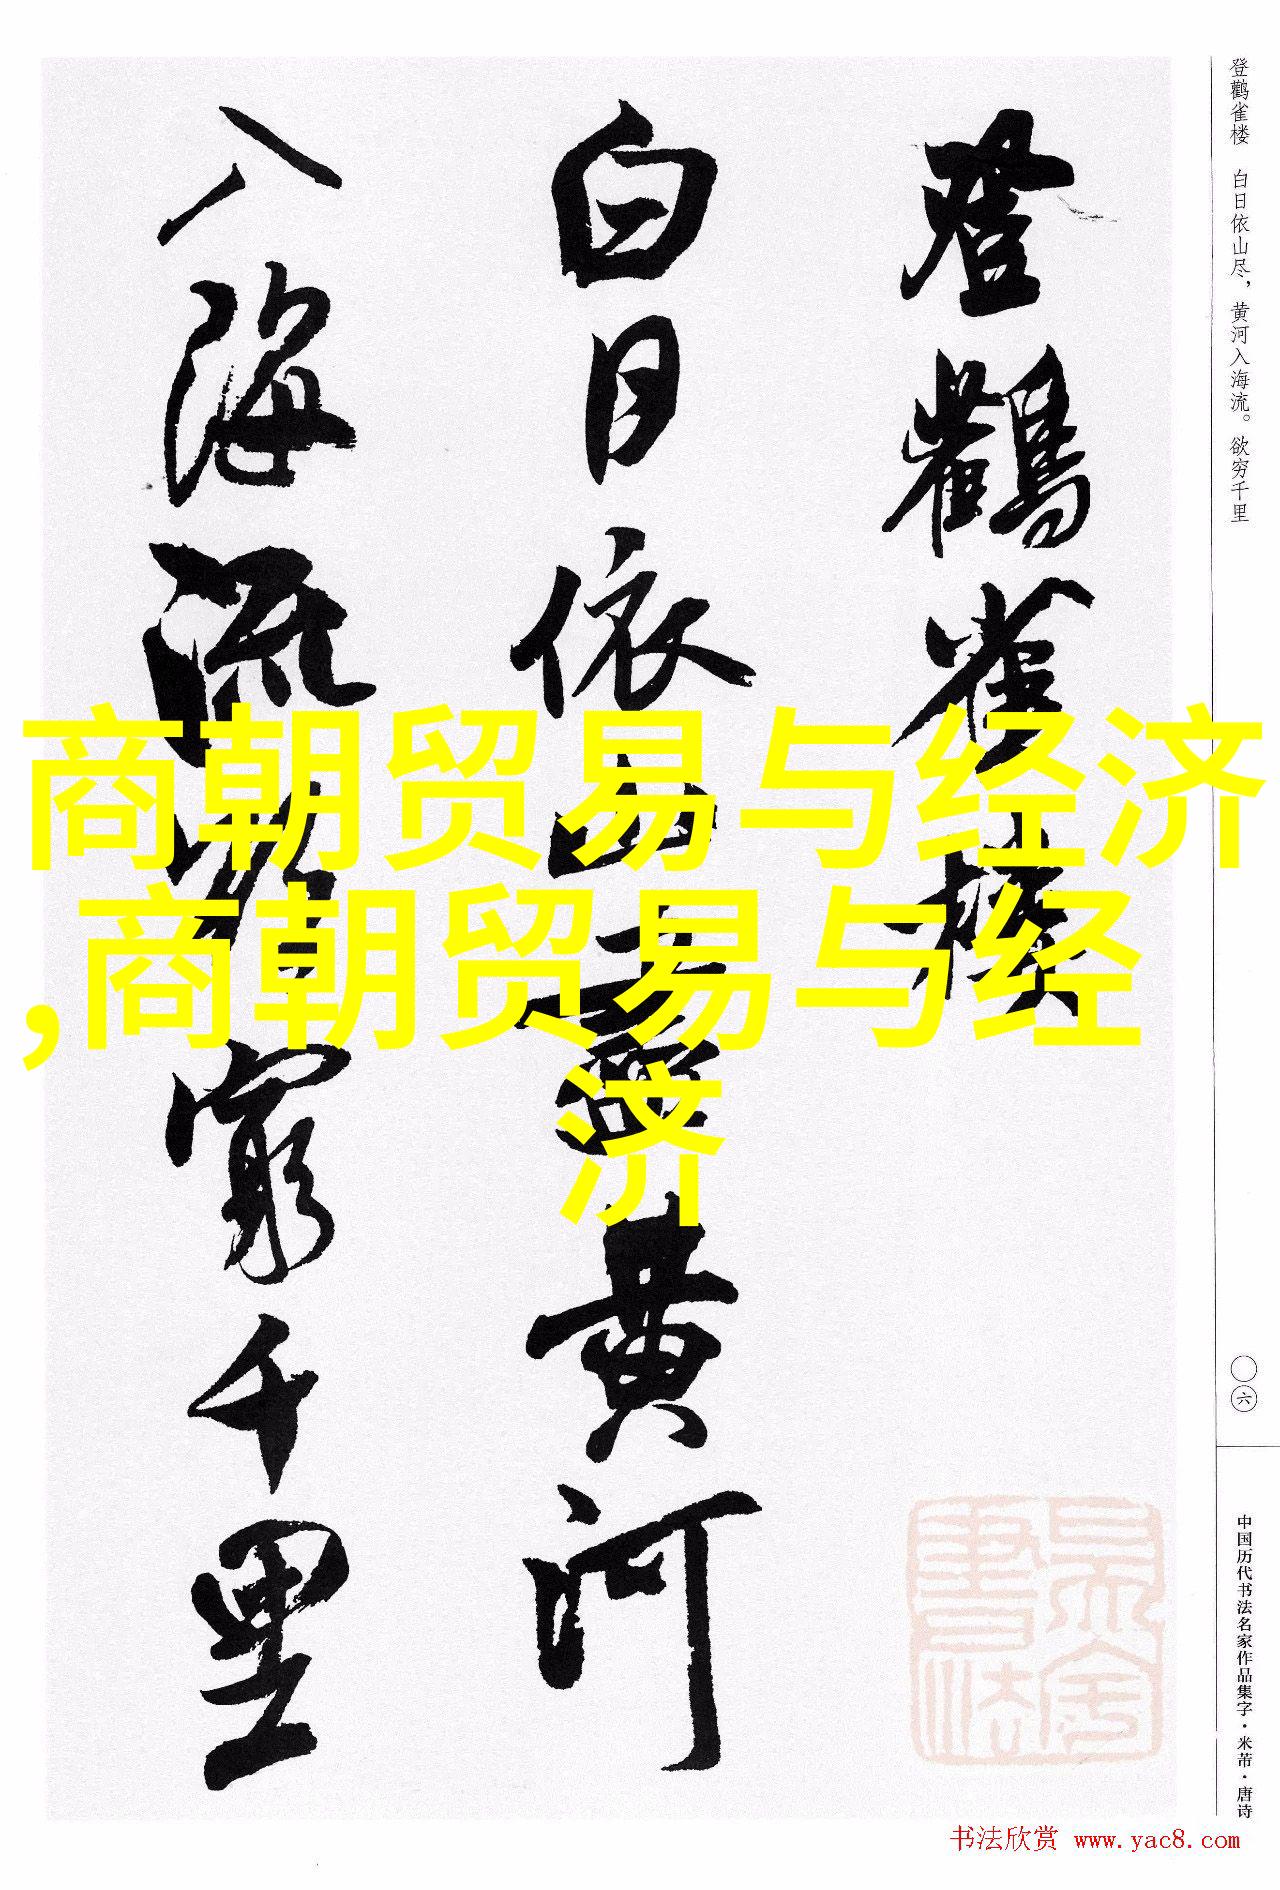 登鹳雀楼 白日依山尽，黄河入海流。欲穷千里
登鸛雀樓
白日依山盡黄河
入海流欲窮千里
商朝贸易与经济
,商朝贸易与经
济
〇六
中国历代书法名家作品集字·米芾·唐诗
书法欣赏 www.yac8.com